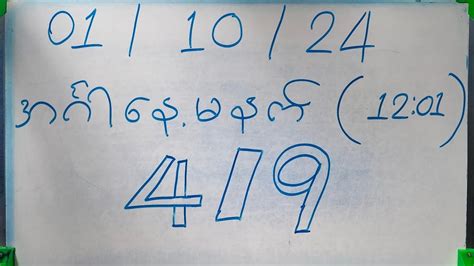 01 / 10 / 24
အင်္ဂါနေ့မနက် (12:01)
4 / 9